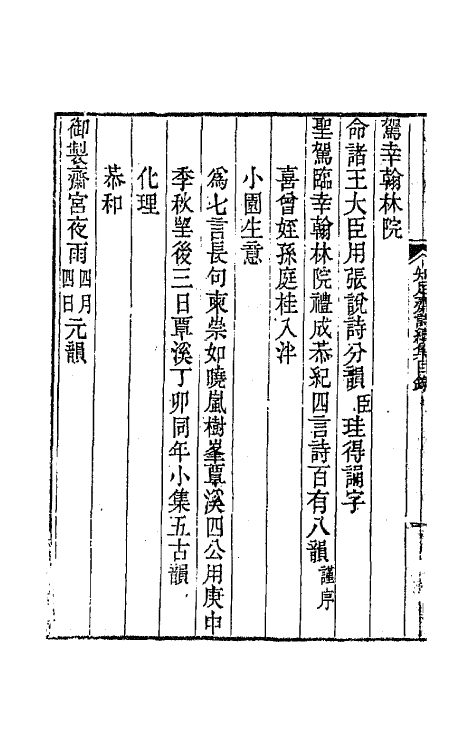 駕幸翰林院
命諸王大臣用張說詩分韻臣珪得誦字
聖駕臨幸翰林院禮成恭紀四言詩百有八韻謹序
喜曾姪孫庭桂入泮
小園生意
為七言長句柬崇如曉嵐樹峯覃溪四公用庚申
季秋望後三日覃溪丁卯同年小集五古韻
化理
恭和
御製齋宮夜雨四月四日元韻
知足齋詩續集目錄